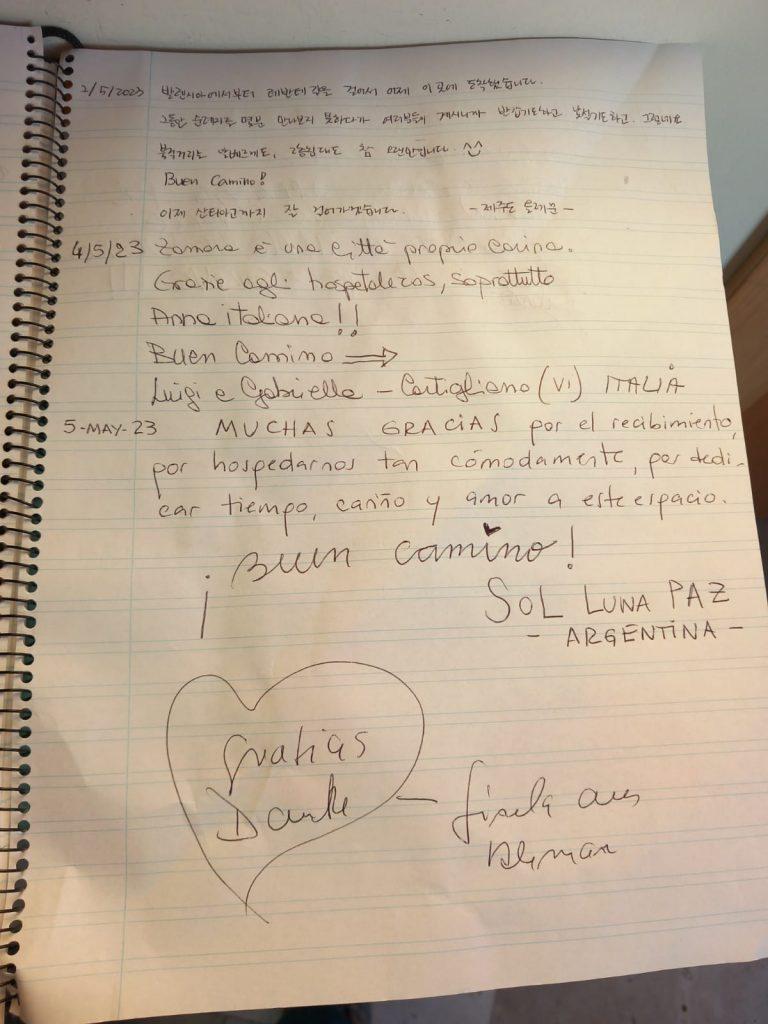 2/5/2023 발렌시아에서부터 레반테길을 걸어서 어제 이 곳에 도착했습니다.
그동안 순례자를 몇분 만나보지 못하다가 여러분들이 계시니까 반갑기도하고 낯설기도하고. 그렇네요
북적거리는 알베르게도, 2층침대도 참 오랜만입니다.
Buen Camino!
이제 산티아고까지 잘 걸어가겠습니다. - 제주도 -
4/5/23 Zamora è una città proprio carina.
Grazie agli hospetaleros, soprattutto
Anna italiana!!
Buen Camino ⇒
Luigi e Gabriella - Cartigliano (VI) ITALIA
5-MAY-23 MUCHAS GRACIAS por el recibimiento,
por hospedarnos tan cómodamente, por dedi-
car tiempo, cariño y amor a este espacio.
¡Buen camino!
SOL LUNA PAZ
- ARGENTINA -
Gratias
Danke - Gisela aus